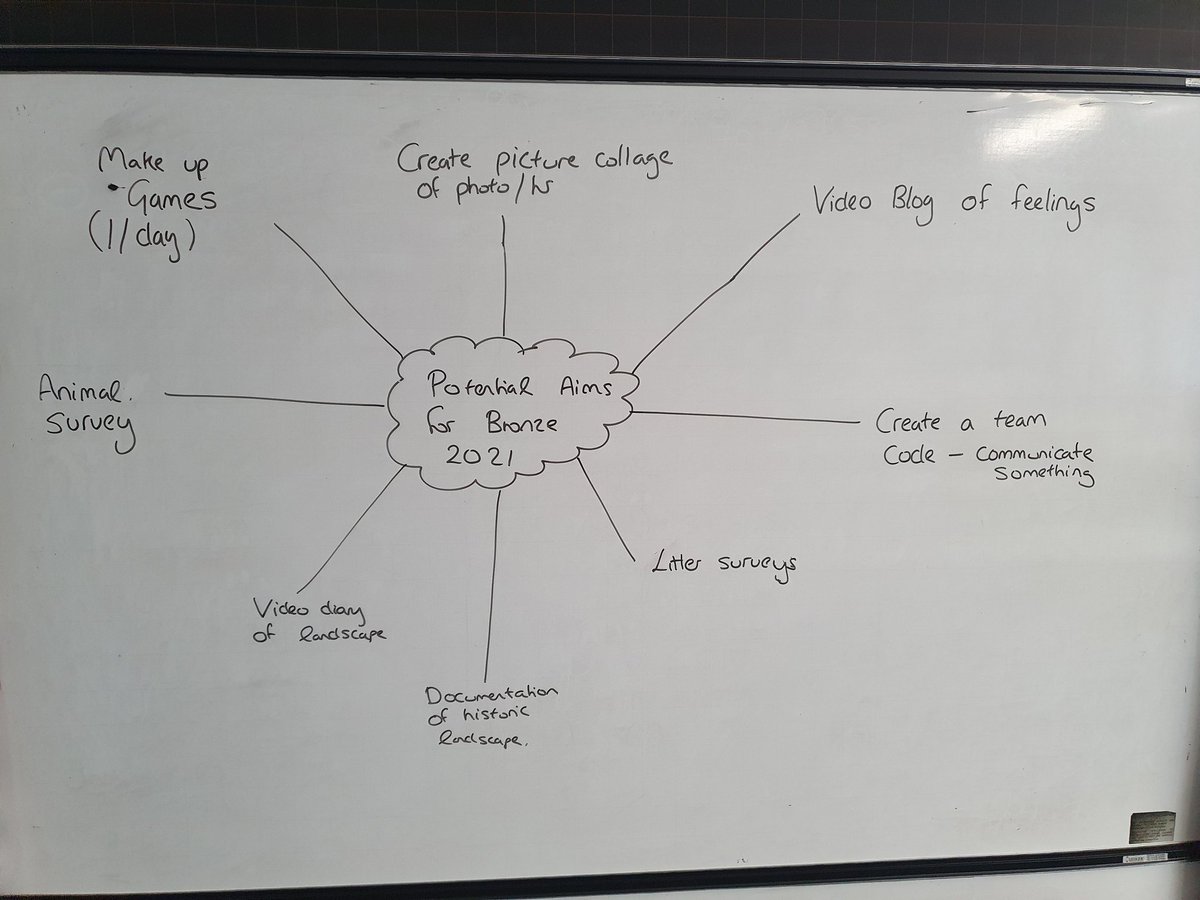 Make up
Games
(1/day)
Create picture collage
of photo/hr
Video Blog of feelings
Animal.
Survey
Potential Aims
for Bronze
2021
Create a team
Code – Communicate
Something
Litter surveys
Video diary
of landscape
Documentation
of historic
landscape.